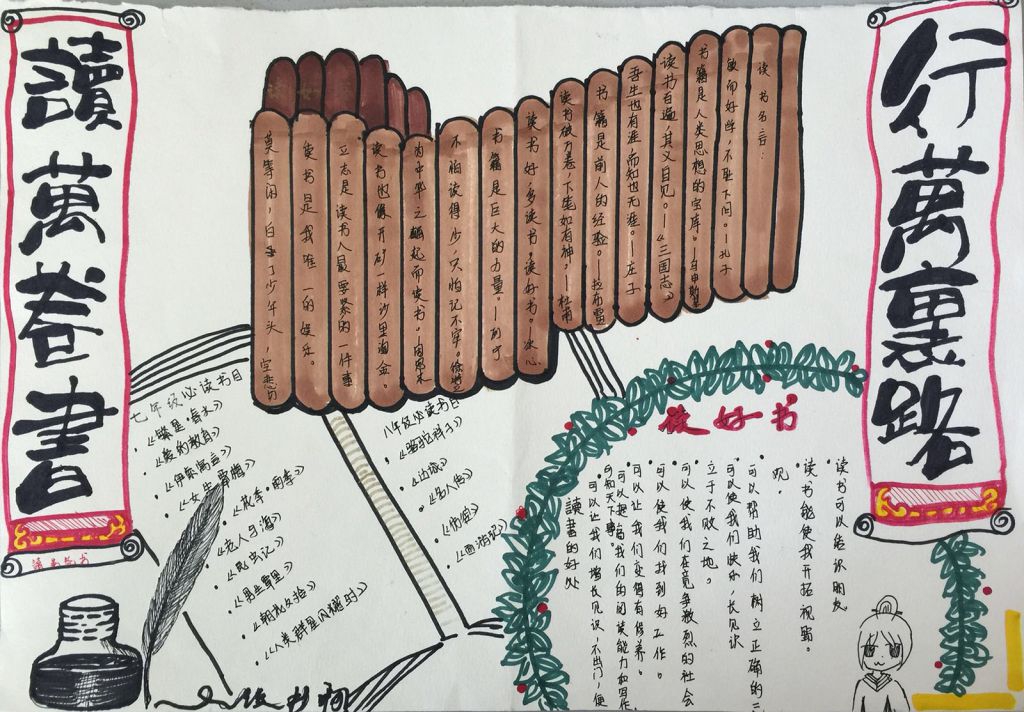 讀萬卷書
行萬裏路
读书名言：
敏而好学，不耻下问。—孔子
书籍是人类思想的宝库。
读书百遍，其义自见。—《三国志》
吾生也有涯，而知也无涯。—庄子
书籍是前人的经验。—拉布雷
读书破万卷，下笔如有神。—杜甫
读书好，多读书，读好书。—冰心
书籍是巨大的力量。—列宁
不怕读得少，只怕记不牢。—徐特立
为中华之崛起而读书。—周恩来
读书也像开矿一样沙里淘金。
立志是读书人最要紧的一件事
读书是我唯一的娱乐。
莫等闲，白了少年头，空悲切
七年级必读书目
·《繁星·春水》
·《爱的教育》
·《伊索寓言》
·《女生贾梅》
·《花季·雨季》
·《老人与海》
·《昆虫记》
·《男生贾里》
·《朝花夕拾》
·《人类群星闪耀时》
八年级必读书目
·《骆驼祥子》
·《边城》
·《名人传》
·《西游记》
读好书
读书可以结识朋友
·读书能使我开拓视野。
·可以帮助我们树立正确的三
观，
·可以使我们快乐，长见识
·可以使我们在竞争激烈的社会
立于不败之地。
·可以使我们找到好工作。
·可以让我们变得有修养。
·可以提高我们的阅读能力和写作
·可以让我们增长见识，不出门，便
可知天下事。
讀書的好处
读书